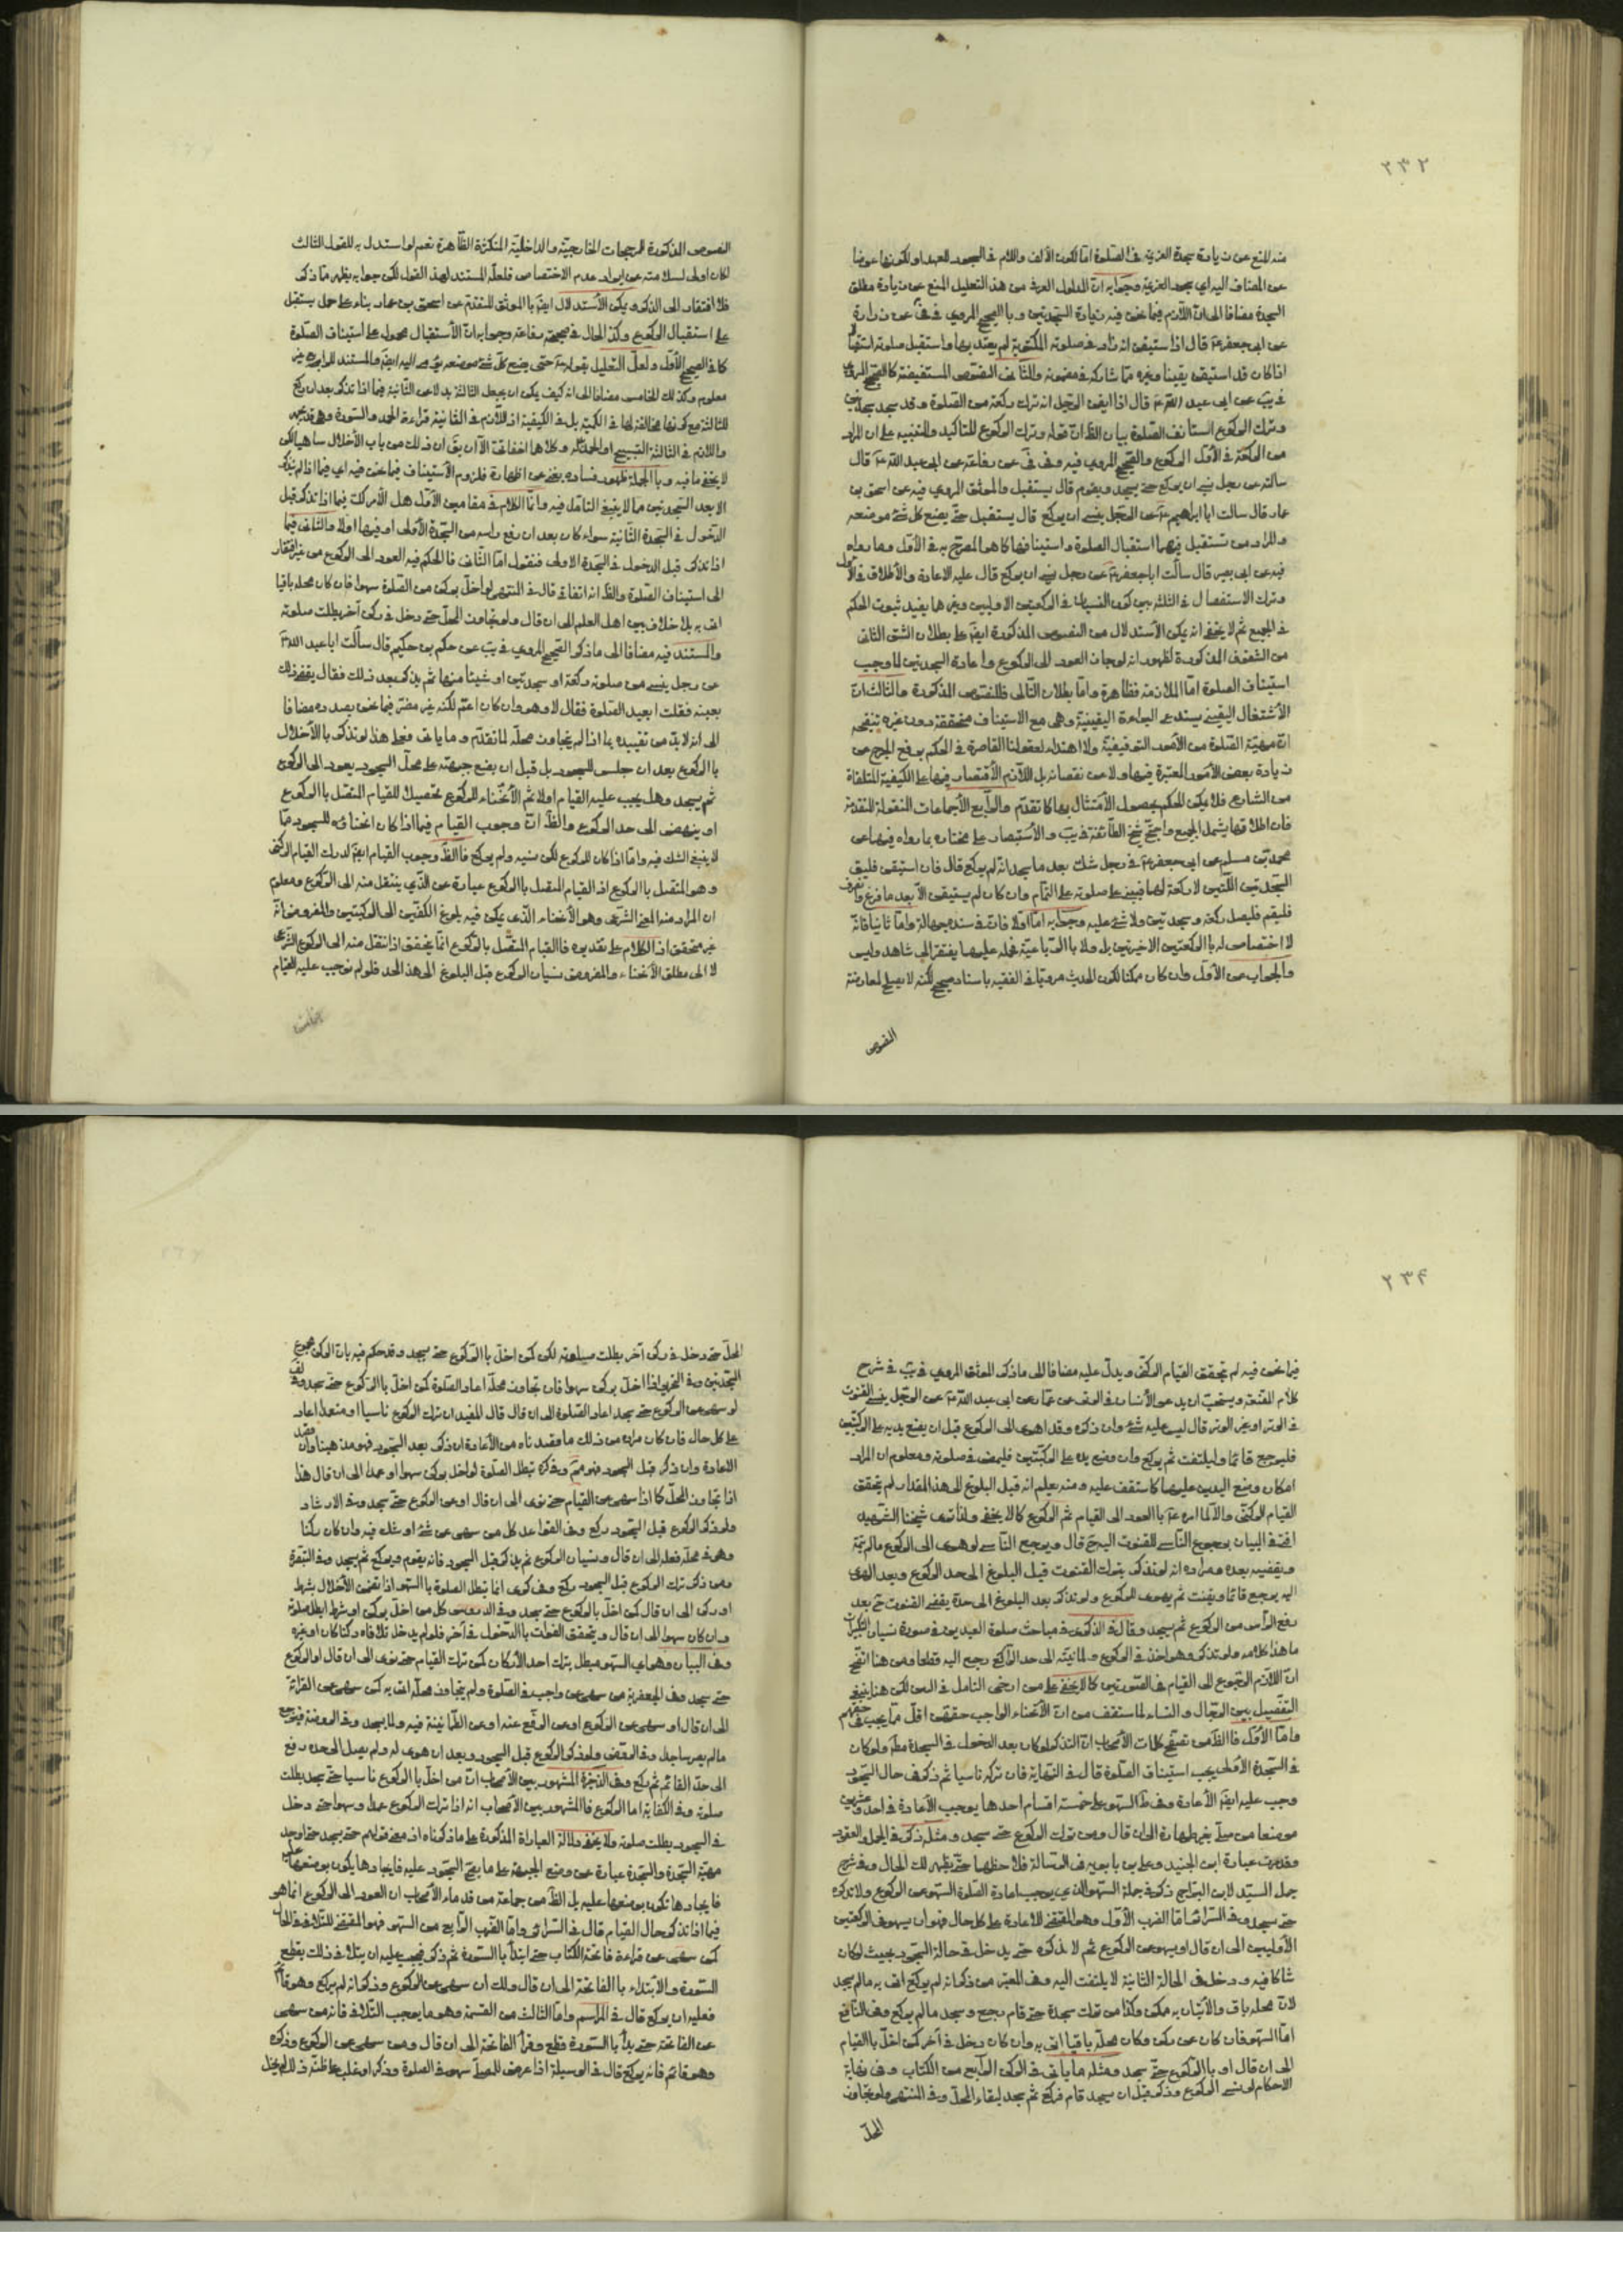 ٢٣٢
منه المنع عن زيادة سجدة العزيمة في الصلوة امّا لكون الألف واللام في السجود للعهد او لكونها عوضا
عن المضاف اليه اي سجود العزيمة وجوابه انّ المدلول العرفي من هذا التعليل المنع عن زيادة مطلق
السجدة مضافا الى انّ اللازم فيما نحن فيه زيادة السجدتين وبالصحيح المروي في في عن زرارة
عن ابي جعفر ع قال اذا استيقن انه زاد في صلوته المكتوبة لم يعتد بها واستقبل صلوته استقبالا
اذا كان قد استيقن يقينا وغيره ممّا شاركه في مضمونه والثاني النصوص المستفيضة كالصحيح المروي
في يب عن ابي عبد الله ع قال اذا ايقن الرجل انه ترك ركعة من الصلوة وقد سجد سجدتين
وترك الركوع استأنف الصلوة بيان الظ انّ قوله وترك الركوع للتأكيد والتنبيه على ان المراد
من الركعة في الأول الركوع والصحيح المروي فيه وفي في عن رفاعة عن ابي عبد الله ع قال
سألته عن رجل نسي ان يركع حتى يسجد ويقوم قال يستقبل والموثق المروي فيه عن اسحق بن
عمار قال سألت ابا ابراهيم ع عن الرجل ينسى ان يركع قال يستقبل حتى يضع كل شئ موضعه
والمراد من تستقبل فيهما استقبال الصلوة واستينافها كما هو المصرّح به في الأول وما رواه
فيه عن ابي بصير قال سألت ابا جعفر ع عن رجل نسي ان يركع قال عليه الاعادة والأطلاق في الأول
وترك الاستفصال في الثلثة بين كون النسيان في الركعتين الاوليين وغيرهما يفيد ثبوت الحكم
في الجميع ثم لا يخفى انه يمكن الأستدلال من النصوص المذكورة ايضا على بطلان الشق الثاني
من الشقوق المذكورة لظهور انه لو جاز العود الى الركوع واعادة السجدتين لما وجب
استيناف الصلوة امّا الملازمة فظاهرة وامّا بطلان التالي فللنصوص المذكورة والثالث انّ
الأشتغال اليقيني يستدعي البراءة اليقينية وهي مع الاستيناف متحققة دون غيره تنقيحه
انّ مهيّة الصلوة من الأمور التوقيفية ولا اهتداء لعقولنا القاصرة في الحكم برفع الحرج عن
زيادة بعض الأمور المعتبرة فيها ولا عن نقصانه بل اللازم الأقتصار فيها على الكيفية المتلقاة
من الشارع فلا يمكن الحكم بحصول الأمتثال بها كما تقدّم والرابع الأجماعات المنقولة المتقدمة
فان اطلاقها يشمل الجميع واحتج شيخ الطائفة في يب والأستبصار على مختاره بما رواه فيهما عن
محمد بن مسلم عن ابي جعفر ع في رجل شك بعد ما سجد انه لم يركع قال فان استيقن فليلق
السجدتين اللتين لا ركعة لهما فيبني على صلوته على التمام وان كان لم يستيقن الّا بعد ما فرغ وانصرف
فليقم فليصل ركعة وسجدتين ولا شئ عليه وجوابه امّا اولا فان في سنده جهالة وامّا ثانيا فانّه
لا اختصاص له بالركعتين الاخيرتين بل ولا بالرباعية فحمله عليها يفتقر الى شاهد وليس
والجواب عن الأول وان كان ممكنا لكون الحديث مرويّا في الفقيه باسناد صحيح لكنه لا يصلح لمعارضة
النصوص
النصوص المذكورة للمرجحات الخارجيّة والداخليّة المتكثرة الظاهرة نعم لو استدل به للقول الثالث
لكان اولى لسلامته عن ايراد عدم الاختصاص فلعلّه المستند لهذا القول لكن جوابه يظهر ممّا ذكر
فلا افتقار الى الذكر ويمكن الأستدلال ايضا بالموثق المتقدم عن اسحق بن عمار بناء على حمل يستقبل
على استقبال الركوع وكذا الحال في صحيحة رفاعة وجوابه انّ الأستقبال محمول على استيناف الصلوة
كما في الصحيح الأول ولعلّ التعليل بقوله ع حتى يضع كلّ شئ موضعه يومي اليه ايضا والمستند للرابع غير
معلوم وكذلك الخامس مضافا الى انه كيف يمكن ان يجعل الثالثة بدلا عن الثانية فيما اذا تذكر بعد ان ركع
للثالثة مع كونها مخالفة لها في الكميّة بل في الكيفية اذ اللازم في الثانية قراءة الحمد والسورة وهو قد يجهر
واللازم في الثالثة التسبيح او الحمد وكلاهما اخفاتا الّا ان يقال ان ذلك من باب الأخلال ساهيا لكن
لا يخفى ما فيه وبالجملة ظهور فساده يغني عن اظهاره فلزوم الأستيناف فيما نحن فيه اي فيما اذا لم يتذكر
الّا بعد السجدتين مما لا ينبغي التأمل فيه وانّما الكلام في مقامين الأول هل الأمر كك فيما اذا تذكر قبل
الدخول في السجدة الثانية سواء كان بعد ان رفع راسه من السجدة الأولى او فيها او لا والثاني فيما
اذا تذكر قبل الدخول في السجدة الاولى فنقول امّا الثاني فالحكم فيه العود الى الركوع من غير افتقار
الى استيناف الصلوة والظ انه اتفاقي قال في المنتهى لو اخلّ بركن من الصلوة سهوا فان كان محله باقيا
اتى به بلا خلاف بين اهل العلم الى ان قال ولو تجاوز المحلّ حتى دخل في ركن آخر بطلت صلوته
والمستند فيه مضافا الى ما ذكر الصحيح المروي في يب عن حكم بن حكيم قال سألت ابا عبد الله ع
عن رجل ينسى من صلوته ركعة او سجدتين او شيئا منها ثم يذكر بعد ذلك فقال يقضي ذلك
بعينه فقلت ايعيد الصلوة فقال لا وهو وان كان اعم لكنه غير مضرّ فيما نحن بصدده مضافا
الى انه لا بدّ من تقييده بما اذا لم يتجاوز محلّه لما تقدّم وما يأتي فعلى هذا لو تذكر بالأخلال
بالركوع بعد ان جلس للسجود بل قبل ان يضع جبهته على محلّ السجود يعود الى الركوع
ثم يسجد وهل يجب عليه القيام اولا ثم الأنحناء للركوع تحصيلا للقيام المتصل بالركوع
او ينهض الى حد الركوع والظ انّ وجوب القيام فيما اذا كان انحناؤه للسجود ممّا
لا ينبغي الشك فيه وامّا اذا كان للركوع لكن نسيه ولم يركع فالظ وجوب القيام ايضا لدرك القيام الركني
وهو المتصل بالركوع اذ القيام المتصل بالركوع عبارة عن الذي ينتقل منه الى الركوع ومعلوم
ان المراد منه المعنى الشرعي وهو الأنحناء الذي يمكن فيه بلوغ الكفين الى الركبتين والمفروض انه
غير متحقق اذ الكلام على تقديره فالقيام المتصل بالركوع انما يتحقق اذا انتقل منه الى الركوع الشرعي
لا الى مطلق الأنحناء والمفروض نسيان الركوع قبل البلوغ الى هذا الحد فلو لم نوجب عليه القيام
٢٣٤
فيما نحن فيه لم يتحقق القيام الركني ويدلّ عليه مضافا الى ما ذكر الموثق المروي في يب في شرح
كلام المقنعة ويستحب ان يدعو الأنسان في الوتر عن عمار عن ابي عبد الله ع عن الرجل ينسى القنوت
في الوتر او غير الوتر قال ليس عليه شئ وان ذكره وقد اهوى الى الركوع قبل ان يضع يديه على الركبتين
فليرجع قائما وليقنت ثم يركع وان وضع يده على الركبتين فليمض في صلوته ومعلوم ان المراد
امكان وضع اليدين عليهما كما ستقف عليه ومنه يعلم انه قبل البلوغ الى هذا المقدار لم يتحقق
القيام الركني والّا لما امر ع بالعود الى القيام ثم الركوع كما لا يخفى ولذا ترى شيخنا الشهيد
افتى في البيان برجوع الناسي للقنوت اليه حيث قال ويرجع الناسي لو هوى الى الركوع ما لم يتمّه
ويقضيه بعده ومراده انه لو تذكر بترك القنوت قبل البلوغ الى حد الركوع وبعد الهوي
اليه يرجع قائما ويقنت ثم يهوي للركوع ولو تذكر بعد البلوغ الى حدّه يقضي القنوت حتى بعد
رفع الرأس من الركوع ثم يسجد وقال في الذكرى في مباحث صلوة العيدين في صورة نسيان التكبيرات
ما هذا كلامه ولو تذكر وهو اخذ في الركوع ولمّا ينته الى حد الراكع رجع اليه قطعا ومن هنا اتضح
انّ اللازم الرجوع الى القيام في الصورتين كما لا يخفى على من ارخى التأمل في البين لكن هنا ينبغي
التفصيل بين الرجال والنساء لما ستقف من انّ الأنحناء الواجب حقهن اقلّ مما يجب في حقهم
وامّا الأول فالظ من تصفح كلمات الأصحاب انّ التذكر لو كان بعد الدخول في السجدة مطلقا ولو كان
في السجدة الأولى يجب استيناف الصلوة قال في النهاية فان تركه ناسيا ثم ذكر في حال السجود
وجب عليه ايضا الأعادة وفي ط السهو على خمسة اقسام احدها يوجب الأعادة في احد وعشرين
موضعا من صلّى بغير طهارة الى ان قال ومن ترك الركوع حتى سجد ومثله ذكر في الجمل والعقود
وقد مرت عبارة ابن الجنيد وعلي بن بابويه في الرسالة فلاحظها حتى يظهر لك الحال وفي شرح
جمل السيّد لابن البراج ذكر في جملة السهو الذي يوجب اعادة الصلوة السهو عن الركوع ولا تذكره
حتى يسجد وفي السرائر امّا الضرب الأول وهو المقتضي للاعادة على كل حال فهو ان يسهو في الركعتين
الأوليين الى ان قال او يسهو عن الركوع ثم لا يذكره حتى يدخل في حالة السجود بحيث لو كان
شاكا فيه ودخل في الحالة الثانية لا يلتفت اليه وفي المعتبر من ذكر انه لم يركع اتى به ما لم يسجد
لانّ محله باق والأتيان به ممكن وكذا من ترك سجدة حتى قام رجع وسجد ما لم يركع وفي النافع
امّا السهو فان كان عن ركن وكان محلّه باقيا اتى به وان كان دخل في آخر كمن اخلّ بالقيام
الى ان قال او بالركوع حتى سجد ومثله ما يأتي في الركن الرابع من الكتاب وفي نهاية
الاحكام لو نسي الركوع وذكر قبل ان يسجد قام فركع ثم يجد لبقاء المحلّ وفي المنتهى ولو تجاوز
المحلّ
المحلّ حتى دخل في ركن آخر بطلت صلوته لكن كمن اخلّ بالركوع حتى سجد وقد حكم فيه بانّ الركن مجموع
السجدتين وفي التحرير اذا اخلّ بركن سهوا فان تجاوز محلّه اعاد الصلوة كمن اخلّ بالركوع حتى سجد وفي لف
لو سهى عن الركوع حتى سجد اعاد الصلوة الى ان قال قال المفيد ان ترك الركوع ناسيا او متعمدا اعاد
على كل حال فان كان مراده من ذلك ما قصدناه من الأعادة ان ذكر بعد السجود فهو مذهبنا وان قصد
الاعادة وان ذكر قبل السجود فهو ممنوع وفي كره تبطل الصلوة لو اخل بركن سهوا او عمدا الى ان قال هذا
اذا تجاوز المحلّ كما اذا سهى عن القيام حتى نوى الى ان قال او عن الركوع حتى يسجد وفي الارشاد
ولو ذكر الركوع قبل السجود ركع وفي القواعد كل من سهى عن شئ او شك فيه وان كان ركنا
وهو في محلّه فعله الى ان قال ونسيان الركوع ثم يذكر قبل السجود فانه يقوم ويركع ثم يسجد وفي التبصرة
ومن ذكر ترك الركوع قبل السجود ركع وفي كرى انما تبطل الصلوة بالسهو اذا تضمن الأخلال بشرط
او ركن الى ان قال كمن اخلّ بالركوع حتى سجد وفي الدروس كل من اخلّ بركن او شرط ابطل صلوته
وان كان سهوا الى ان قال ويتحقق الفوات بالدخول في آخر فلو لم يدخل تلافاه ركنا كان او غيره
وفي البيان وهو اي السهو مبطل بترك احد الأركان كمن ترك القيام حتى نوى الى ان قال او الركوع
حتى سجد وفي الجعفرية من سهى عن واجب في الصلوة ولم يتجاوز محلّه اتى به كمن سهى عن القراءة
الى ان قال او سهى عن الركوع او عن الرفع عنه او عن الطمأنينة فيه ولمّا يسجد وفي الروضة فيرجع
ما لم يصر ساجدا وفي المقتصر ولو ذكر الركوع قبل السجود وبعد ان هوى له ولم يصل الى حده رفع
الى حدّ القائم ثم ركع وفي الذخيرة المشهور بين الأصحاب انّ من اخلّ بالركوع ناسيا حتى يسجد بطلت
صلوته وفي الكفاية اما الركوع فالمشهور بين الأصحاب انه اذا ترك الركوع عمدا وسهوا حتى دخل
في السجود بطلت صلوته ولا يخفى دلالة العبارات المذكورة على ما ذكرناه اذ معنى قولهم حتى يسجد حتى اوجد
مهيّة السجدة والسجدة عبارة عن وضع الجبهة على ما يصح السجود عليه فايجادها يكون بوضعها عليه
فايجادها تكون بوضعها عليه بل الظ من جماعة من قدماء الأصحاب ان العود الى الركوع انما هو
فيما اذا تذكر حال القيام قال في السرائر وامّا الضرب الرابع من السهو فهو المقتضي للتلافي في الحال
كمن سهى عن قراءة فاتحة الكتاب حتى ابتدأ بالسورة ثم ذكر فيجب عليه ان يبتدئ في ذلك بقطع
السورة والأبتداء بالفاتحة الى ان قال وكك ان سهى عن الركوع وذكر انه لم يركع وهو قائم
فعليه ان يركع قال في المراسم وامّا الثالث من القسمة وهو ما يوجب التلافي فانه من سهى
عن الفاتحة حتى بدأ بالسورة قطع وقرأ الفاتحة الى ان قال ومن سهى عن الركوع وذكره
وهو قائم فانه يركع قال في الوسيلة اذا عرض للمصلّي سهو في الصلوة وذكر او غلب على ظنّه ذلك لم يخل